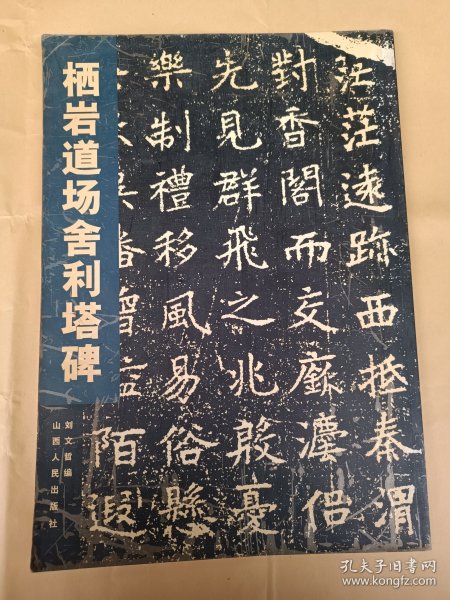 栖岩道场舍利塔碑
刘文哲编
山西人民出版社
茫茫遠跡西抵秦渭
對香閣而交廡瀍侶
先見群飛之兆殷憂
樂制禮移風易俗懸
陌遐
孔夫子旧书网
www.kongfz.com